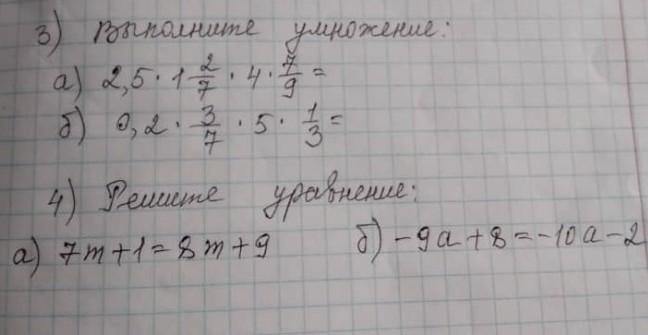 3) Выполните умножение:
а) 2,5 · 1 2/7 · 4 · 7/9 =
б) 0,2 · 3/7 · 5 · 1/3 =
4) Решите уравнение:
а) 7m+1=8m+9 б) -9a+8=-10a-2